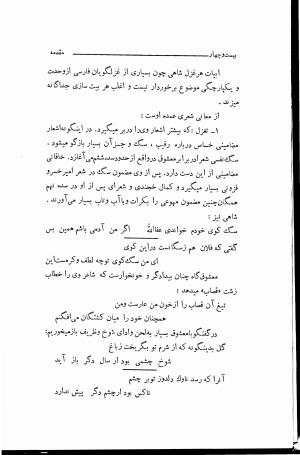 بیست و چهار
مقدمه
ابیات هر غزل شاهی چون بسیاری از غزلگویان فارسی از وحدت
و یکپارچگی موضوع برخوردار نیست و اغلب هر بیت سازی جداگانه
میزند.
از معانی شعری عمده اوست:
۱ـ تغزل: که بیشتر اشعار وی را در بر میگیرد. در اینگونه اشعار
مضامینی حساس درباره رقیب، سگ و جز آن بسیار بازگو میشود.
سگ نفسی شعر در برابر معشوق در واقع از حدود سده ششم می‌آغازد. خاقانی
مضامینی از این دست دارد. پس از وی مضمون سگ در شعر امیر خسرو
فزونی بسیار میگیرد و کمال خجندی و شعرای پس از او در سده نهم
همگان چنین مضمون مبهوعی را بکرات و با آب و تاب بسیار می‌آورند.
شاهی نیز:
سگ کوی خودم خواندی عفاالله اگر من آدمی باشم همین بس
گفتی که فلان هم ز سگانست در این کوی
ای من سگ کوی توچه لطف و کرمست این
معشوق گاه چنان بیدادگر و خونخوارست که شاعر وی را خطاب
زشت «قصاب» میدهد:
تیغ آن قصاب را از خون من عارست ومن
همچنان خود را میان کشتگان می‌افکنم
در گفتگو با معشوق بسیار به لحن و ادای شوخ و ظریف باز میخوریم:
گل بدینگونه که از شرم تو بگریخت ز باغ
شوخ چشمی بود ار سال دگر باز آید
آنرا که رسد ناوک دلدوز تو بر چشم
ناکس بود ار چشم دگر پیش ندارد